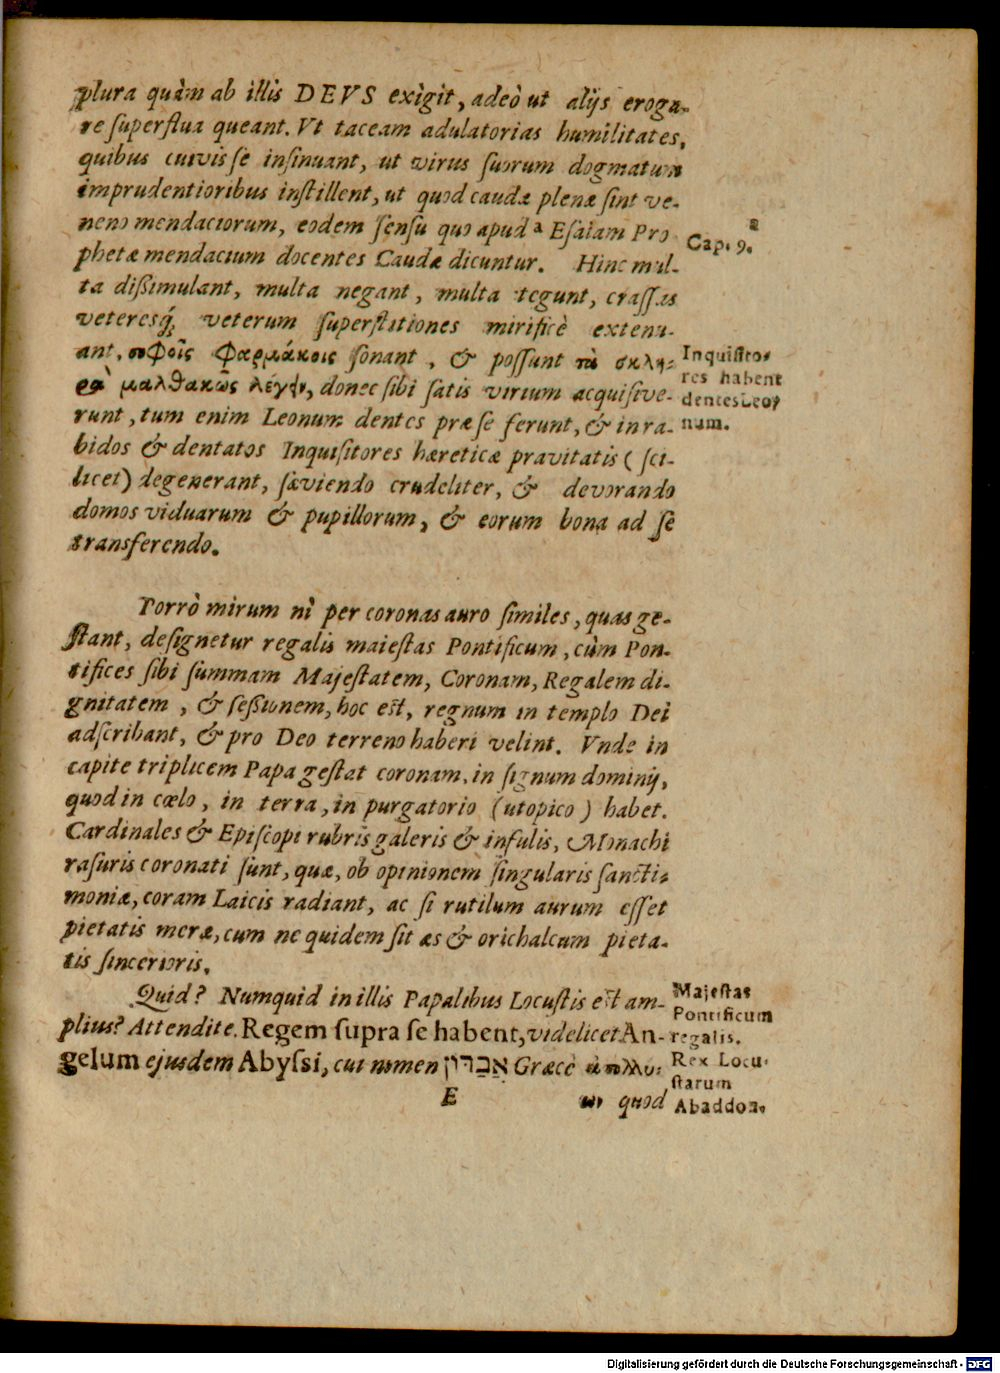 plura quàm ab illis DEVS exigit, adeò ut alijs eroga-
re superflua queant. Vt taceam adulatorias humilitates,
quibus cuivis se insinuant, ut virus suorum dogmatum
imprudentioribus instillent, ut quod caudæ plenæ sint ve-
neno mendaciorum, eodem sensu quo apud ª Esaiam Pro
a
Cap. 9.
phetæ mendacium docentes Caudæ dicuntur. Hinc mul-
ta dißimulant, multa negant, multa tegunt, crassas
veteresq́; veterum superstitiones mirificè extenu-
ant, σοφοῖς φαρμάκοις sonant, & possunt τὰ σκλη-
ρὰ μαλθακῶς λέγειν, donec sibi satis virium acquisive-
runt, tum enim Leonum dentes præ se ferunt, & in ra-
bidos & dentatos Inquisitores hæreticæ pravitatis (sci-
Inquisito-
res habent
dentes Leo-
num.
licet) degenerant, sæviendo crudeliter, & devorando
domos viduarum & pupillorum, & eorum bona ad se
transferendo.
Porrò mirum nì per coronas auro similes, quas ge-
stant, designetur regalis maiestas Pontificum, cùm Pon-
tifices sibi summam Majestatem, Coronam, Regalem di-
gnitatem, & seßionem, hoc est, regnum in templo Dei
adscribant, & pro Deo terreno haberi velint. Vnde in
capite triplicem Papa gestat coronam, in signum dominij,
quod in cœlo, in terra, in purgatorio (utopico) habet.
Cardinales & Episcopi rubris galeris & infulis, Monachi
rasuris coronati sunt, quæ, ob opinionem singularis sancti-
moniæ, coram Laicis radiant, ac si rutilum aurum esset
pietatis meræ, cum ne quidem sit æs & orichalcum pieta-
tis sincerioris.
Quid? Numquid in illis Papalibus Locustis est am-
plius? Attendite. Regem supra se habent, videlicet An-
gelum ejusdem Abyssi, cui nomen אֲבַדּוֹן Græcè ἀπολλύ-
Majestas
Pontificum
regalis.
Rex Locu-
starum
Abaddon.
E
ων quod
Digitalisierung gefördert durch die Deutsche Forschungsgemeinschaft - DFG